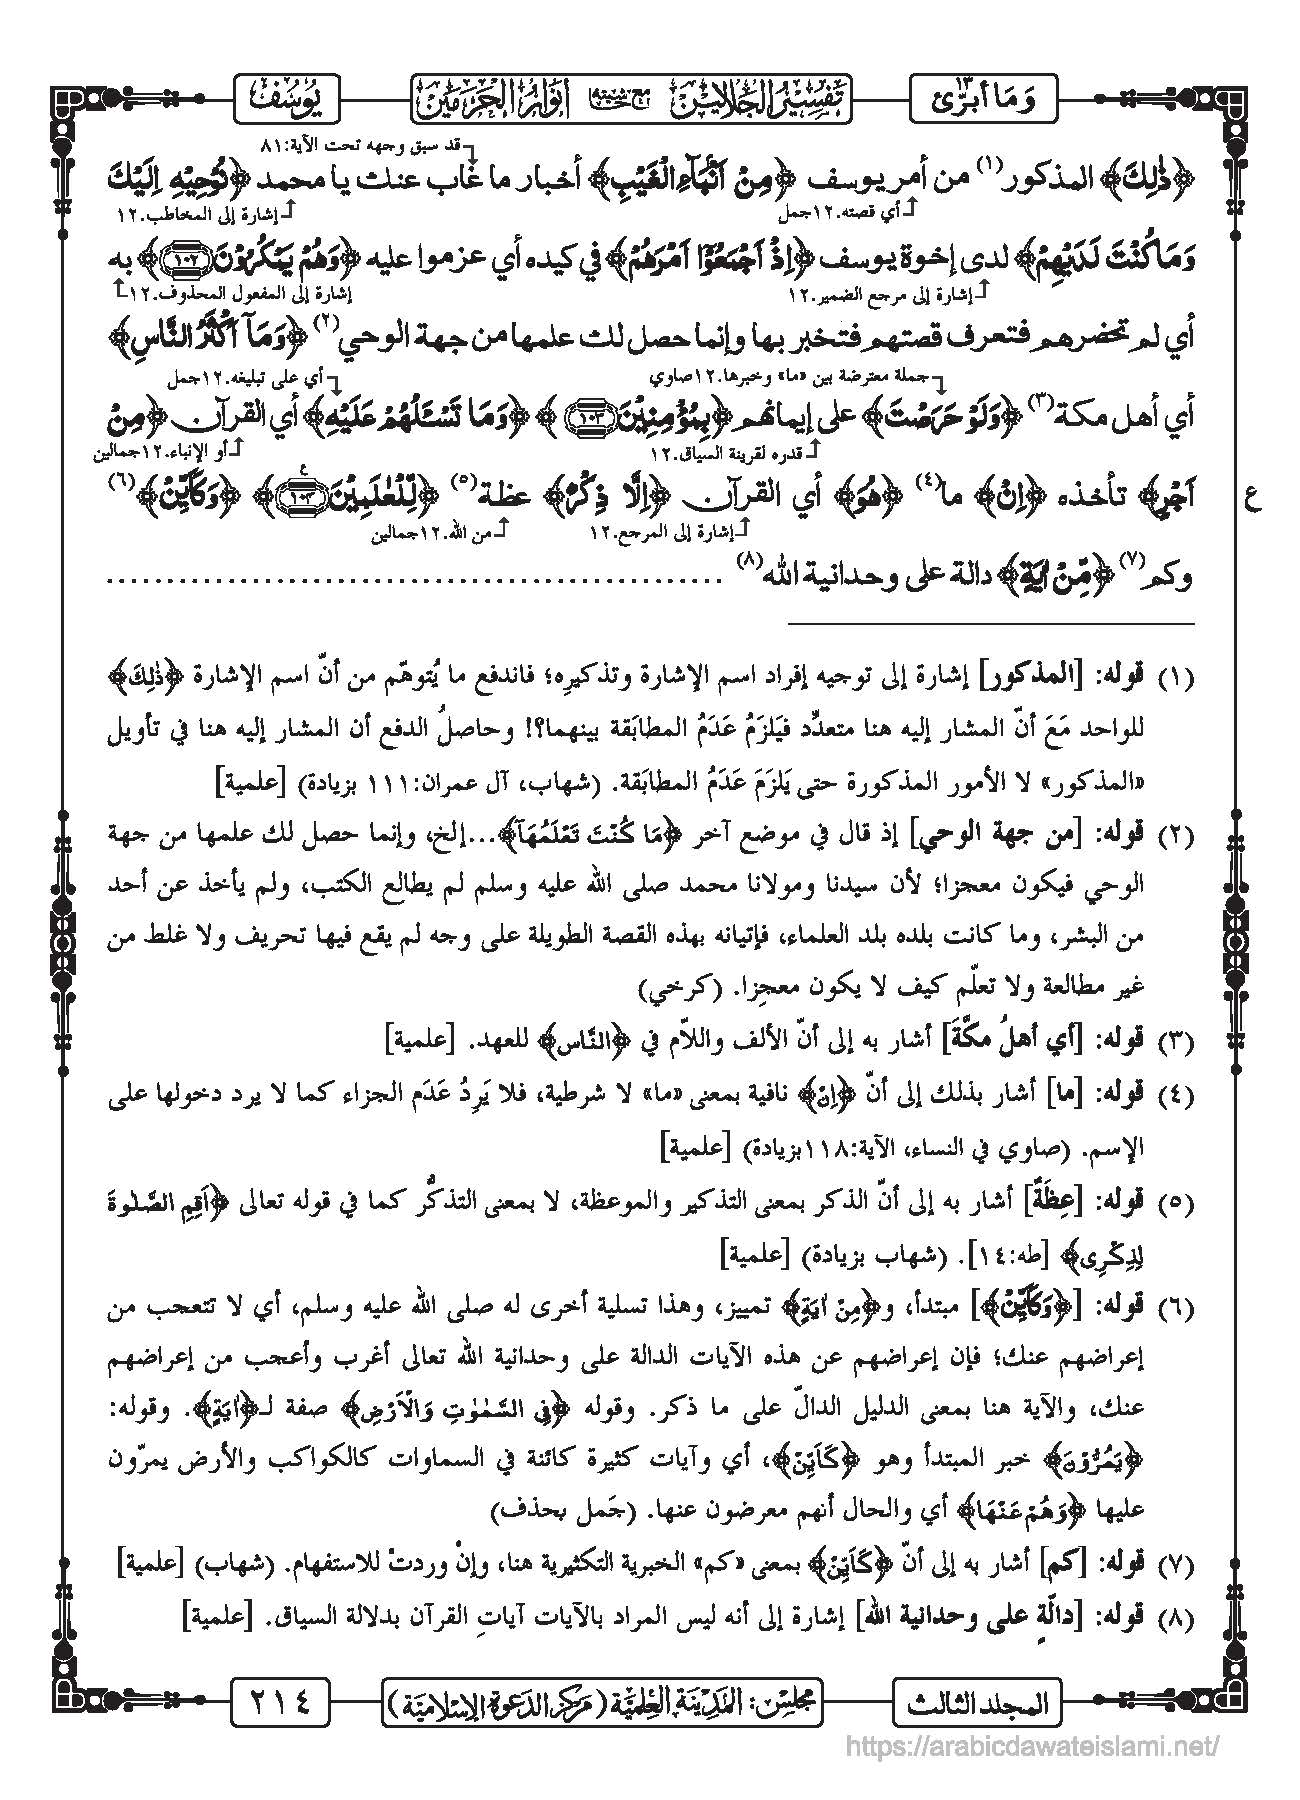 وَمَا أُبَرِّئُ ١٣
تفسير الجلالين مع حاشيته أنوار الحرمين
يُوسُف
قد سبق وجهه تحت الآية:٨١
﴿ذٰلِكَ﴾ المذكور(١) من أمر يوسف ﴿مِنْ اَنْۢبَآءِ الْغَيْبِ﴾ أخبار ما غاب عنك يا محمد ﴿نُوْحِيْهِ اِلَيْكَ
أي قصته.١٢جمل
إشارة إلى المخاطب.١٢
وَمَا كُنْتَ لَدَيْهِمْ﴾ لدى إخوة يوسف ﴿اِذْ اَجْمَعُوْۤا اَمْرَهُمْ﴾ في كيده أي عزموا عليه ﴿وَهُمْ يَمْكُرُوْنَ ﴿١٠٢﴾﴾ به
إشارة إلى مرجع الضمير.١٢
إشارة إلى المفعول المحذوف.١٢
أي لم تحضرهم فتعرف قصتهم فتخبر بها وإنما حصل لك علمها من جهة الوحي(٢) ﴿وَمَاۤ اَكْثَرُ النَّاسِ﴾
جملة معترضة بين «ما» وخبرها.١٢صاوي
أي على تبليغه.١٢جمل
أي أهل مكة(٣) ﴿وَلَوْ حَرَصْتَ﴾ على إيمانهم ﴿بِمُؤْمِنِيْنَ ﴿١٠٣﴾﴾ ﴿وَمَا تَسْـَٔلُهُمْ عَلَيْهِ﴾ أي القرآن ﴿مِنْ
قدره لقرينة السياق.١٢
أو الإنباء.١٢جمالين
اَجْرٍ﴾ تأخذه ﴿اِنْ﴾ ما(٤) ﴿هُوَ﴾ أي القرآن ﴿اِلَّا ذِكْرٌ﴾ عظة(٥) ﴿لِّلْعٰلَمِيْنَ ﴿١٠٤﴾﴾ ﴿وَكَاَيِّنْ﴾(٦)
ع
إشارة إلى المرجع.١٢
من الله.١٢جمالين
وكم(٧) ﴿مِّنْ اٰيَةٍ﴾ دالة على وحدانية الله(٨) ........................................
(١) قوله: [المذكور] إشارة إلى توجيه إفراد اسم الإشارة وتذكيرِه؛ فاندفع ما يُتوهّم من أنّ اسم الإشارة ﴿ذٰلِكَ﴾
للواحد مَعَ أنّ المشار إليه هنا متعدِّد فيَلزَمُ عَدَمُ المطابَقة بينهما؟! وحاصلُ الدفع أن المشار إليه هنا في تأويل
«المذكور» لا الأمور المذكورة حتى يَلزَمَ عَدَمُ المطابَقة. (شهاب، آل عمران:١١١ بزيادة) [علمية]
(٢) قوله: [من جهة الوحي] إذ قال في موضع آخر ﴿مَا كُنْتَ تَعْلَمُهَآ﴾...إلخ، وإنما حصل لك علمها من جهة
الوحي فيكون معجزا؛ لأن سيدنا ومولانا محمد صلى الله عليه وسلم لم يطالع الكتب، ولم يأخذ عن أحد
من البشر، وما كانت بلده بلد العلماء، فإتيانه بهذه القصة الطويلة على وجه لم يقع فيها تحريف ولا غلط من
غير مطالعة ولا تعلّم كيف لا يكون معجِزا. (كرخي)
(٣) قوله: [أي أهلُ مكَّةَ] أشار به إلى أنّ الألف واللاّم في ﴿النَّاس﴾ للعهد. [علمية]
(٤) قوله: [ما] أشار بذلك إلى أنّ ﴿اِنْ﴾ نافية بمعنى «ما» لا شرطية، فلا يَرِدُ عَدَم الجزاء كما لا يرد دخولها على
الإسم. (صاوي في النساء، الآية:١١٨بزيادة) [علمية]
(٥) قوله: [عِظَةٌ] أشار به إلى أنّ الذكر بمعنى التذكير والموعظة، لا بمعنى التذكُّر كما في قوله تعالى ﴿اَقِمِ الصَّلٰوةَ
لِذِكْرِى﴾ [طه:١٤]. (شهاب بزيادة) [علمية]
(٦) قوله: [﴿وَكَاَيِّنْ﴾] مبتدأ، و﴿مِنْ اٰيَةٍ﴾ تمييز، وهذا تسلية أخرى له صلى الله عليه وسلم، أي لا تتعجب من
إعراضهم عنك؛ فإن إعراضهم عن هذه الآيات الدالة على وحدانية الله تعالى أغرب وأعجب من إعراضهم
عنك، والآية هنا بمعنى الدليل الدالّ على ما ذكر. وقوله ﴿فِى السَّمٰوٰتِ وَالْاَرْضِ﴾ صفة لـ﴿اٰيَةٍ﴾. وقوله:
﴿يَمُرُّوْنَ﴾ خبر المبتدأ وهو ﴿كَاَيِّنْ﴾، أي وآيات كثيرة كائنة في السماوات كالكواكب والأرض يمرّون
عليها ﴿وَهُمْ عَنْهَا﴾ أي والحال أنهم معرضون عنها. (جَمل بحذف)
(٧) قوله: [كم] أشار به إلى أنّ ﴿كَاَيِّنْ﴾ بمعنى «كم» الخبرية التكثيرية هنا، وإنْ وردتْ للاستفهام. (شهاب) [علمية]
(٨) قوله: [دالّةٍ على وحدانية الله] إشارة إلى أنه ليس المراد بالآيات آياتِ القرآن بدلالة السياق. [علمية]
المجلد الثالث
مجلس: المدينة العلمية (مركز الدعوة الإسلامية)
٢١٤
https://arabicdawateislami.net/